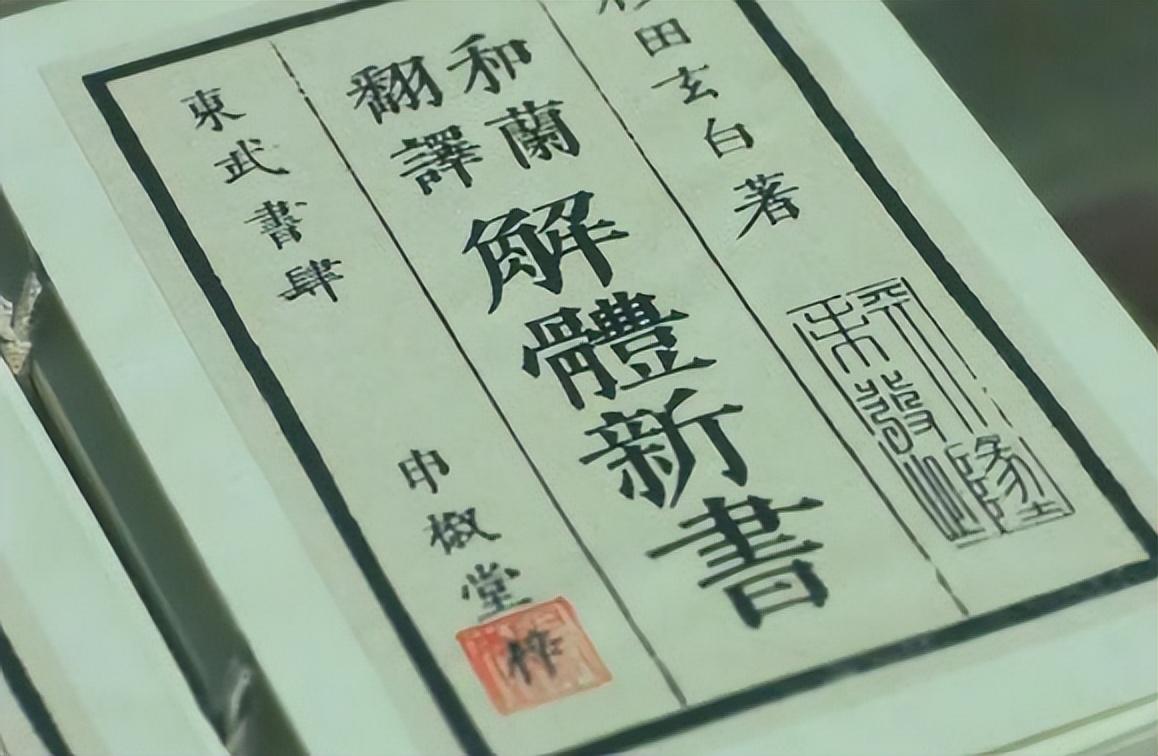 杉田玄白著
和蘭
翻譯
解體新書
東武書肆
申椒堂梓